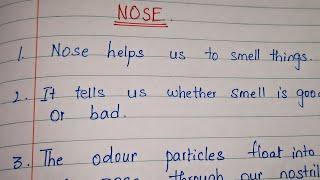 NOSE.
1. Nose helps us to smell things.
2. It tells us whether smell is good
or bad.
3. The odour particles float into
through our nostril